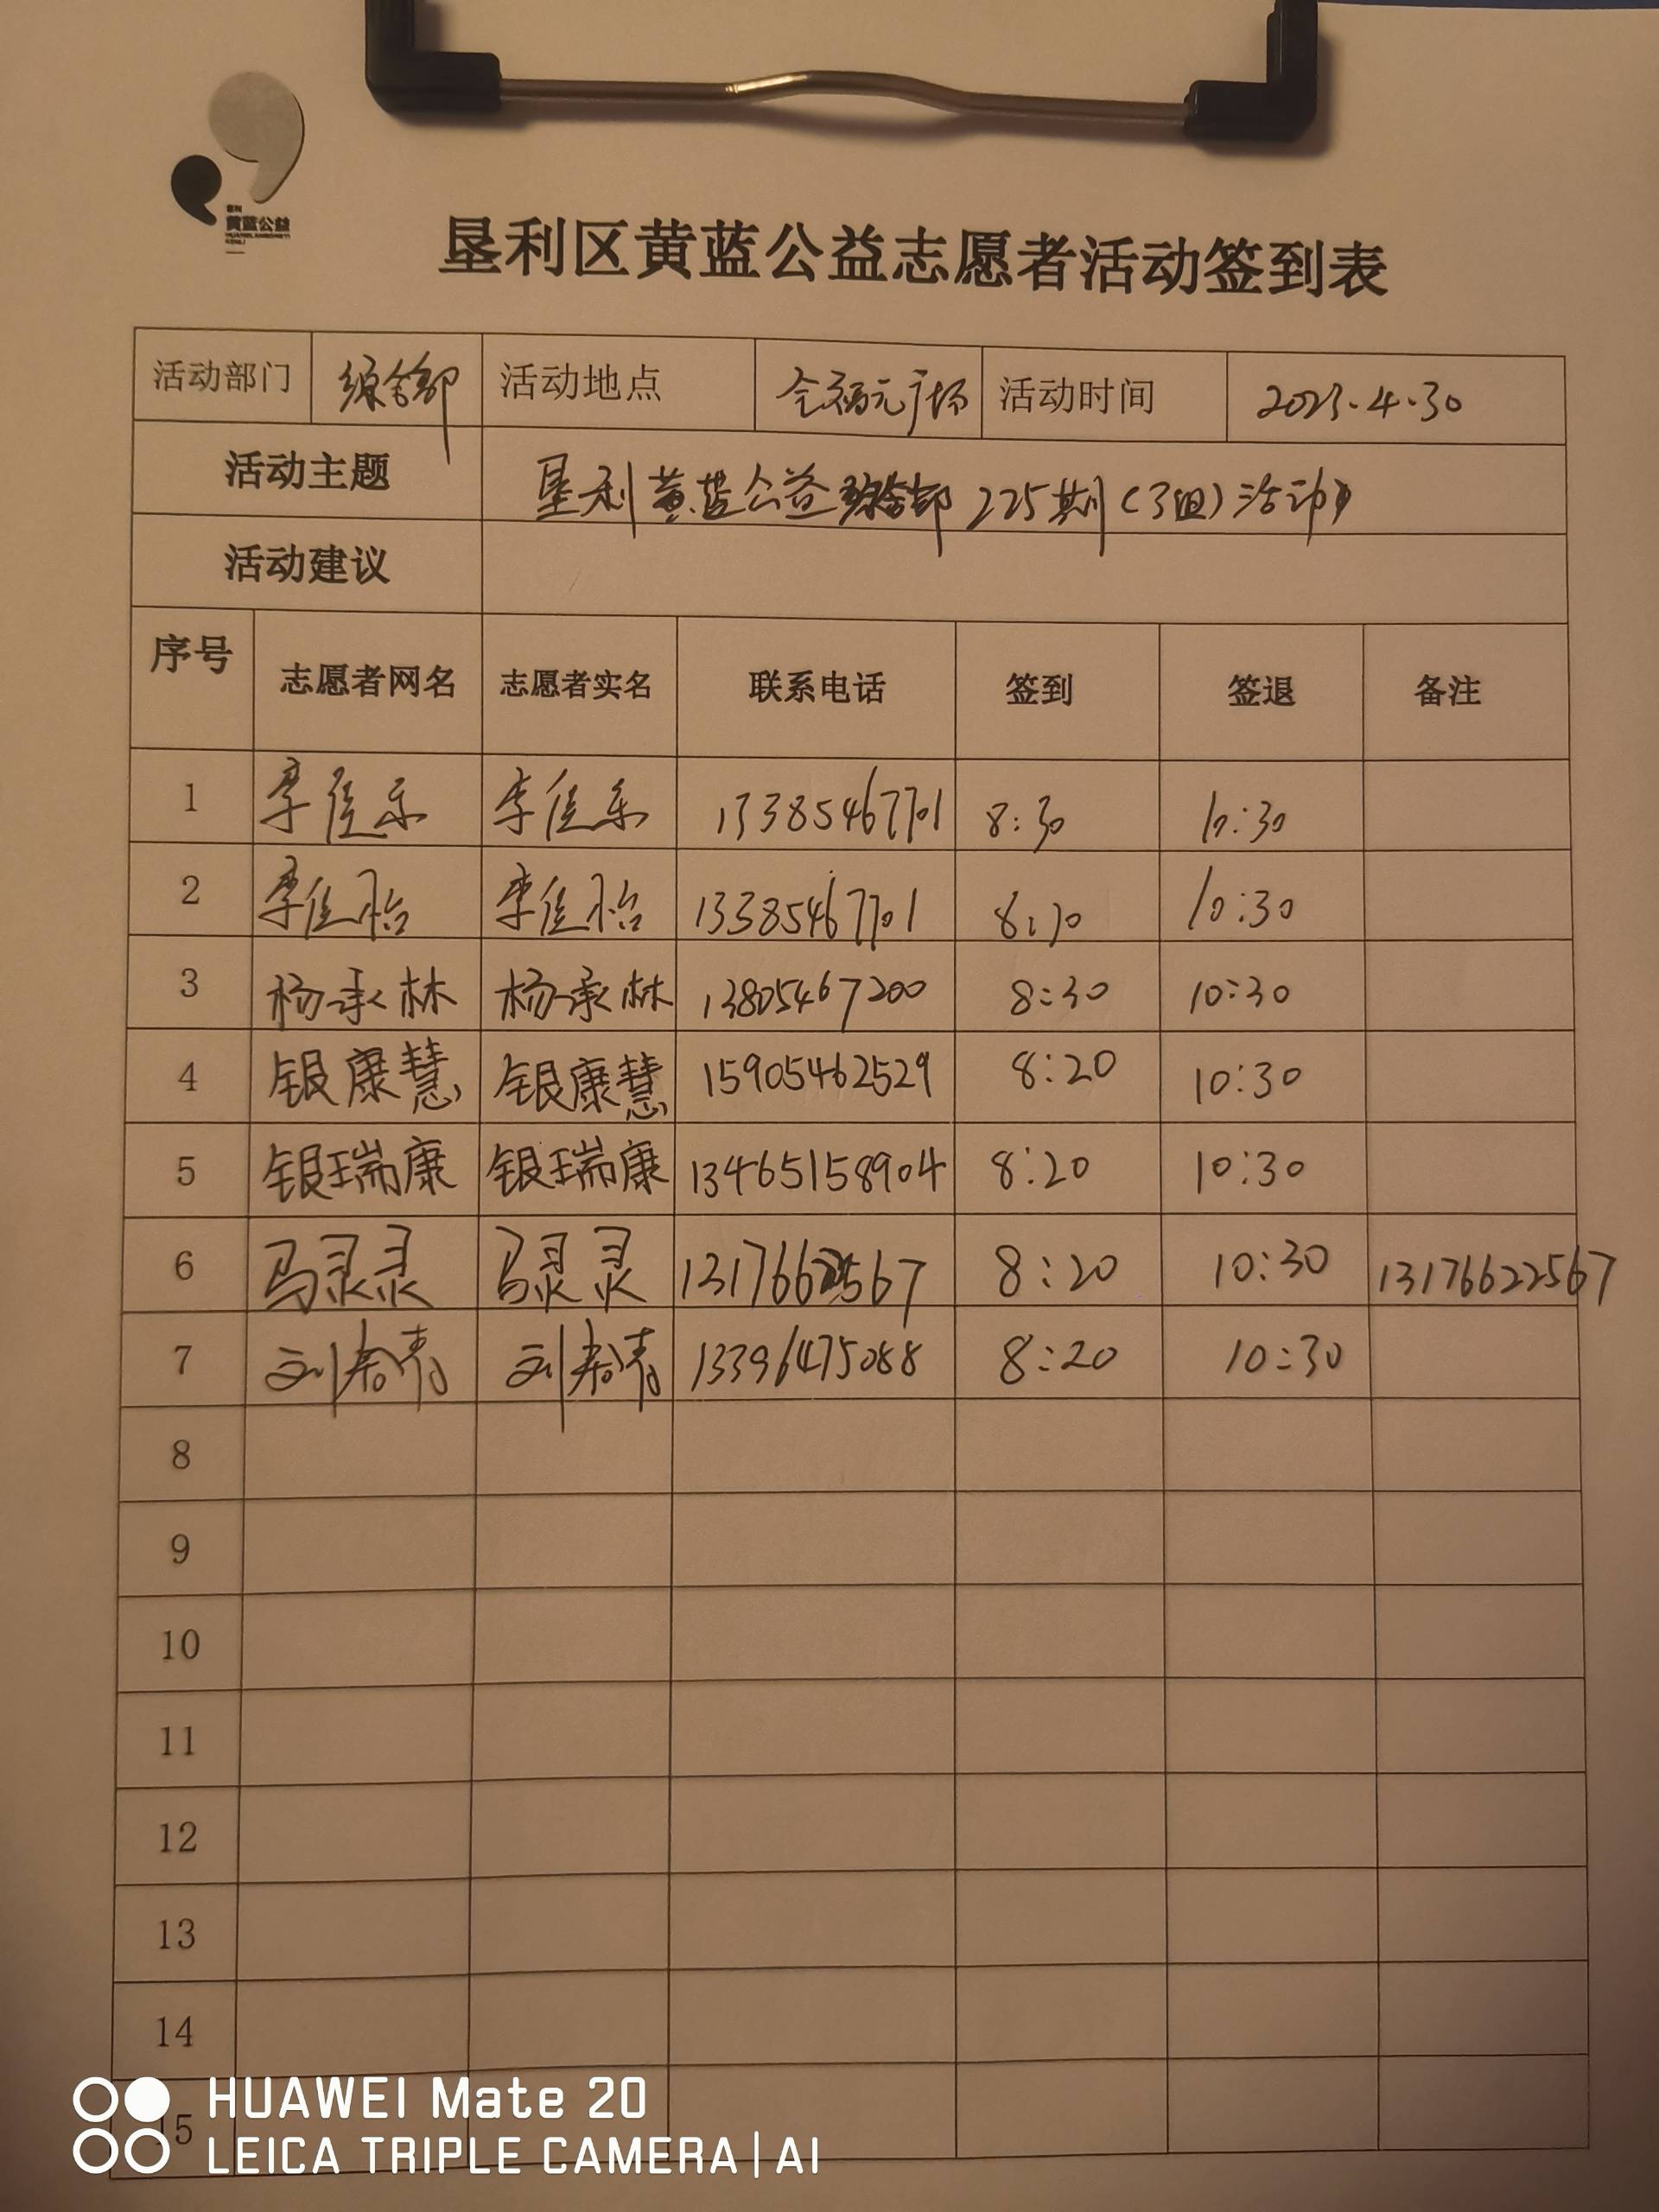 垦利
黄蓝公益
垦利区黄蓝公益志愿者活动签到表
活动部门 综合部 活动地点 全福元广场 活动时间 2023.4.30
活动主题 垦利黄蓝公益综合部225期(3组)活动
活动建议
序号 志愿者网名 志愿者实名 联系电话 签到 签退 备注
1 李佳乐 李佳乐 13385467701 8:30 10:30
2 李佳怡 李佳怡 13385467701 8:30 10:30
3 杨承林 杨承林 13805467200 8:30 10:30
4 银康慧 银康慧 15905462529 8:20 10:30
5 银瑞康 银瑞康 13465158904 8:20 10:30
6 马灵灵 马灵灵 13176622567 8:20 10:30 13176622567
7 刘希青 刘希青 13396475088 8:20 10:30
8
9
10
11
12
13
14
15
HUAWEI Mate 20
LEICA TRIPLE CAMERA|AI